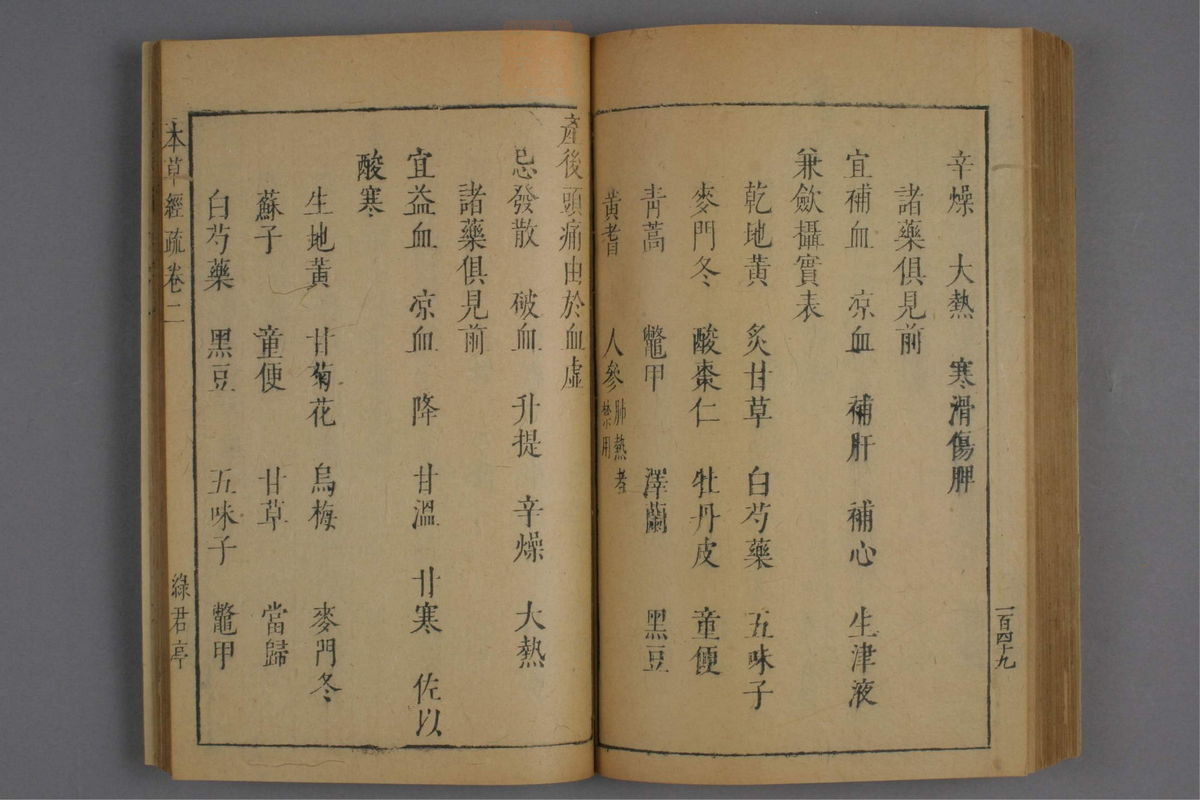 辛燥　大熱　寒滑傷脾
諸藥俱見前
宜補血　凉血　補肝　補心　生津液
兼歛攝實表
乾地黃　炙甘草　白芍藥　五味子
麥門冬　酸棗仁　牡丹皮　童便
青蒿　鼈甲　澤蘭　黑豆
黃耆　人參肺熱者禁用
產後頭痛由於血虛
忌發散　破血　升提　辛燥　大熱
諸藥俱見前
宜益血　凉血　降　甘溫　甘寒　佐以
酸寒
生地黃　甘菊花　烏梅　麥門冬
蘇子　童便　甘草　當歸
白芍藥　黑豆　五味子　鼈甲
本草經疏卷二　綠君亭
一百四十九